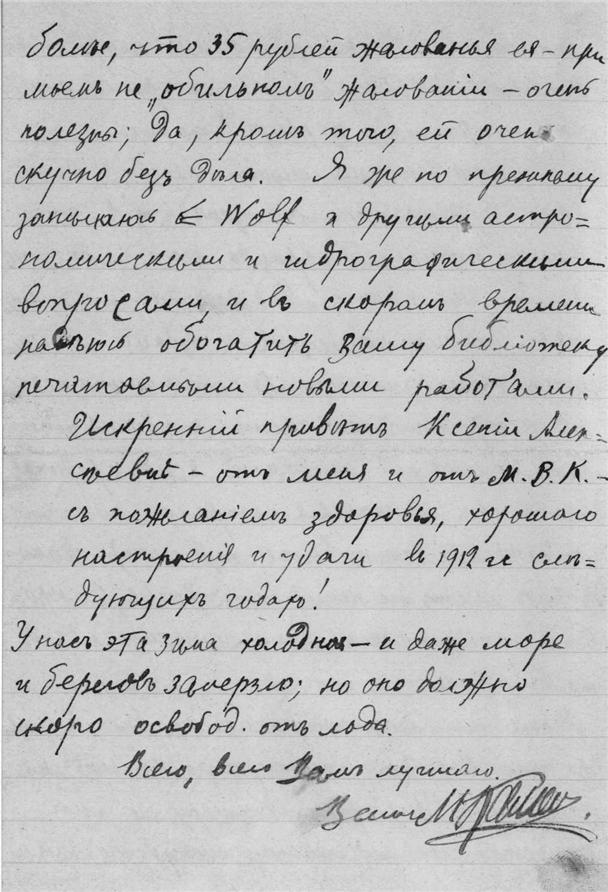 болѣе, что 35 рублей жалованья ея – при
моемъ не „обильномъ" жалованіи – очень
полезны; да, кромѣ того, ей очень
скучно безъ дѣла. Я же по прежнему
занимаюсь Wolf и другими астро=
номическими и гидрографическими
вопросами, и въ скоромъ времени
надѣюсь обогатить Вашу библіотеку
печатаемыми новыми работами.
Искренній привѣтъ Ксеніи Алек=
сѣевнѣ – отъ меня и отъ М. В. К. –
съ пожеланіемъ здоровья, хорошаго
настроенія и удачи въ 1912 и слѣ=
дующихъ годахъ!
У насъ эта зима холодная – и даже море
и береговъ замерзло; но оно должно
скоро освобод. отъ льда.
Всего, всего Вамъ лучшаго.
Вашъ